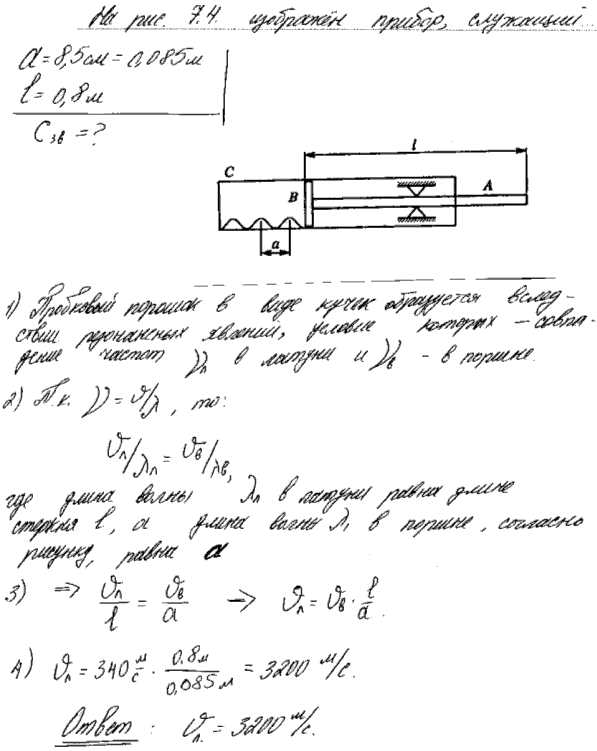 На рис. 7.4. изображён прибор, служащий...
a = 8,5см = 0,085м
l = 0,8м
Cзв = ?
l
C
B
A
a
1) Пробковый порошок в виде кучек образуется вслед-
ствии резонансных явлений, условие которых – совпа-
дение частот νл в латуни и νв - в поршне.
2) Т.к. ν = υ/λ, то:
υл/λл = υв/λв,
где длина волны λл в латуни равна длине
стержня l, а длина волны λ1 в поршне, согласно
рисунку, равна a
3) => υл/l = υв/a -> υл = υв · l/a.
4) υл = 340 м/с · 0.8м/0,085м = 3200 м/с.
Ответ: υл. = 3200 м/с.